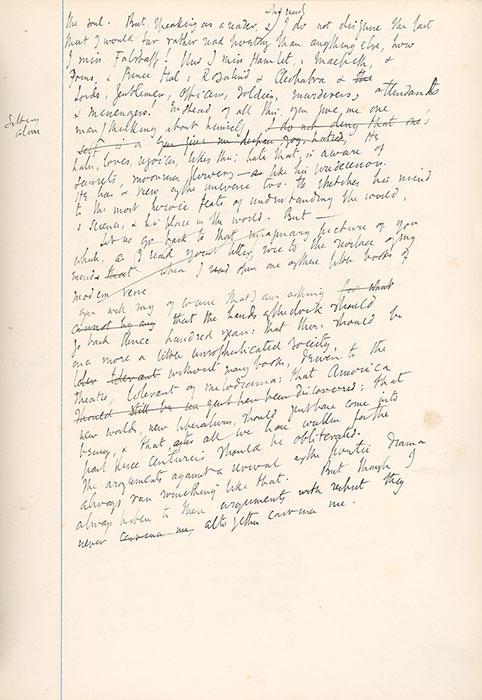 the soul. But, speaking as a reader, & I do not disguise the fact
that I would far rather read poetry than anything else, how
I miss Falstaff! How I miss Hamlet, & Macbeth, &
Prince Hal, & Rosalind & Cleopatra & the
lords, gentlemen, officers, soldiers, murderers, attendants
& messengers! Instead of all this you give me one
man thinking about himself. I do not deny that one
self is a you give me despair, joy, hatred, He
hates, loves, rejoices, likes this; hates that, is aware of
secrets, moonrises, flowers — like his
He has a view of the universe too. He stretches his mind
to the most heroic feats of understanding the world,
& science, & his place in the world. But —
Let us go back to that imaginary picture of you
which, as I read your letter, rose to the surface of my
mind when I read open one of these little books of
modern verse
you will say of course that I am asking for what
cannot be any that the hands of the clock should
go back three hundred years: that there should be
once more a little unsophisticated society,
tolerant without many books, given to the
theatre, tolerant of melodrama; that America
should still be just have been discovered; that
new worlds, new literatures, should just have come into
being, & that all we have written for the
past three centuries should be obliterated.
The arguments against a revival of the poetic drama
always ran something like that. But though I
always listen to these arguments with respect they
never convince me, altogether convince me.